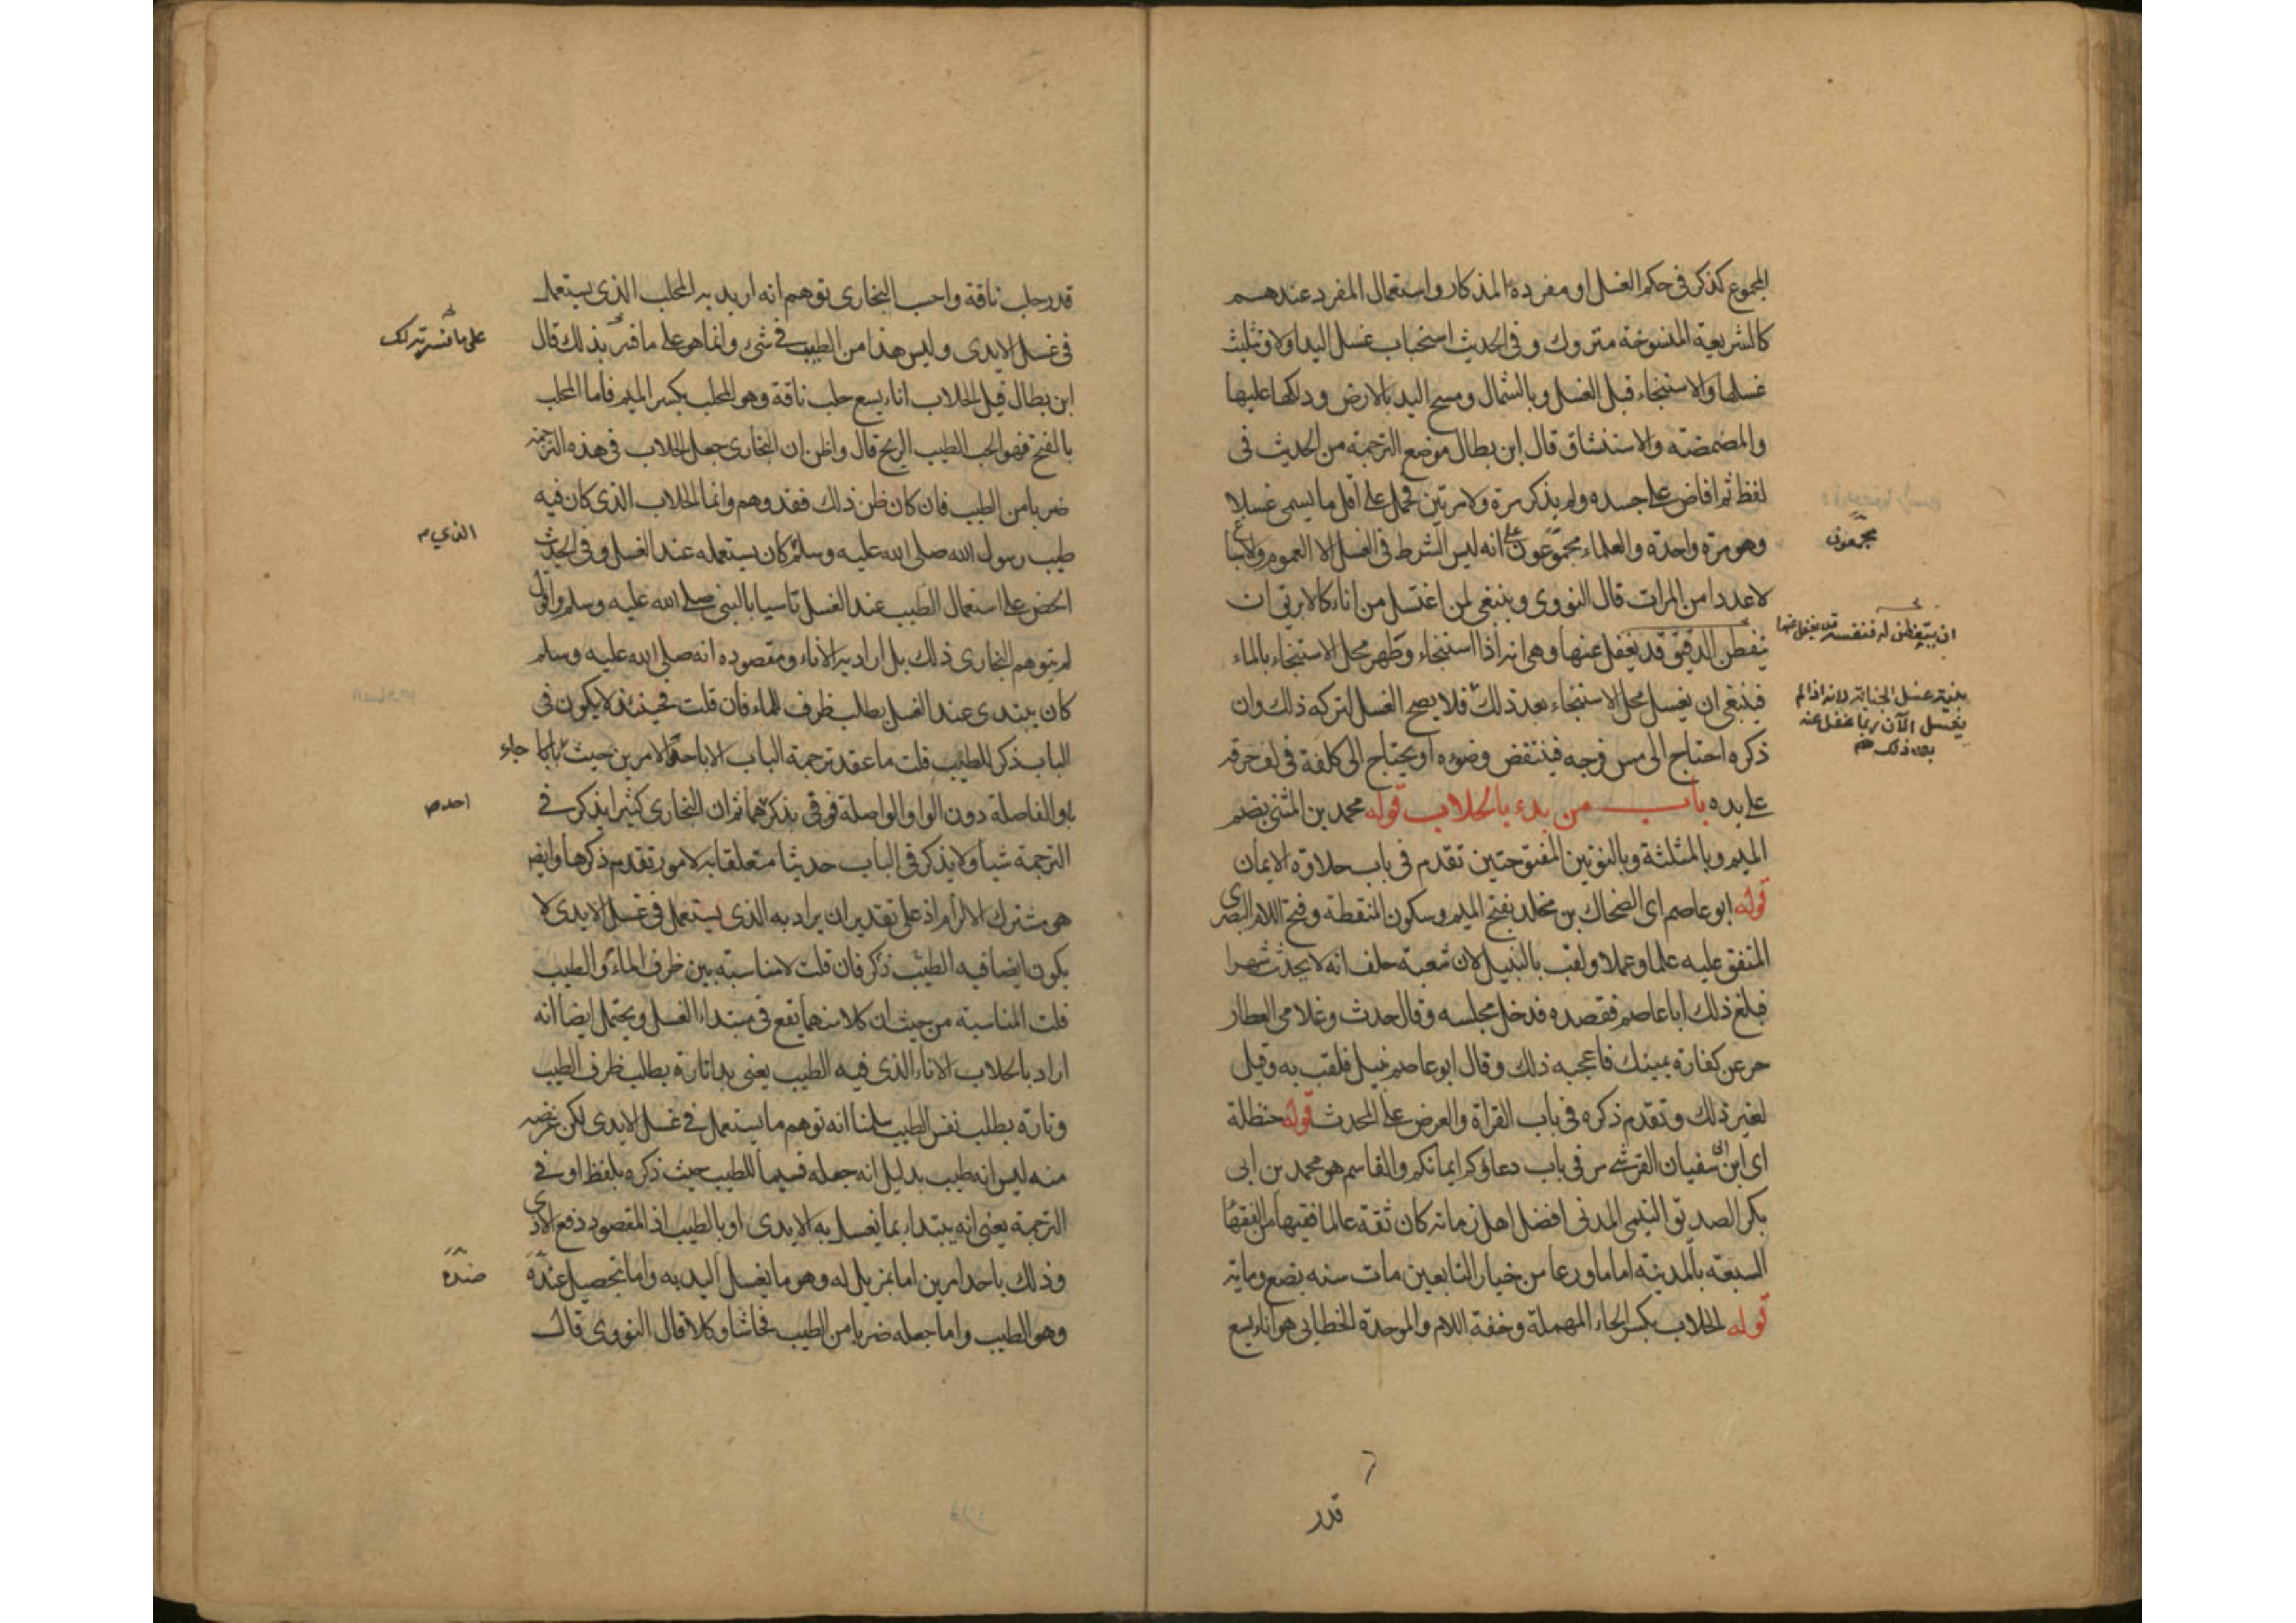 المجموع كذكر في حكم الغسل او مفرده المذكار واستعمال المفرد عندهم
كالشريعة المنسوخة متروك وفي الحديث استحباب غسل اليد اولا وتثليث
غسلها والاستنجاء قبل الغسل وبالشمال ومسح اليد بالارض ودلكها عليها
والمضمضة والاستنشاق قال ابن بطال موضع الترجمة من الحديث في
لفظ ثم افاض على جسده ولم يذكر مرة ولا مرتين فحمل على اقل ما يسمى غسلا
وهو مرة واحدة والعلماء مجموعون على انه ليس الشرط في الغسل الا العموم والاسباغ
مجمعون
لا عددا من المرات قال النووي وينبغي لمن اغتسل من اناء كالابريق ان
يتفطن الدقيق قد يغفل عنها وهي انه اذا استنجاء وطهر محل الاستنجاء بالماء
فينبغي ان يغسل محل الاستنجاء بعد ذلك فلا يصح الغسل لتركه ذلك وان
بنية غسل الجنابة لانه اذا لم
يغسل الآن ربما غفل عنه
بعد ذلك صح
ذكره احتاج الى مس فرجه فينتقض وضوءه او يحتاج الى كلفة في لف خرقة
على يده باب من بدء بالحلاب قوله محمد بن المثنى بضم
الميم وبالمثلثة وبالنونين المفتوحتين تقدم في باب حلاوة الايمان
قوله ابو عاصم اى الضحاك بن مخلد بفتح الميم وسكون المنقطة وفتح اللام البصرى
المتفق عليه علما وعملا ولقب بالنبيل لان شعبة حلف انه لا يحدث شهرا
فبلغ ذلك ابا عاصم فقصده فدخل مجلسه وقال حدث وغلامي العطار
حر عن كفارة يمينك فاعجبه ذلك وقال ابو عاصم نبيل فلقب به وقيل
لغير ذلك وتقدم ذكره في باب القراة والعرض على المحدث قوله حنظلة
اى ابن ابى سفيان القرشي مر في باب دعاؤكم ايمانكم والقاسم هو محمد بن ابى
بكر الصديق التيمي المدنى افضل اهل زمانه كان ثقة عالما فقيها من الفقهاء
السبعة بالمدينة اماما ورعا من خيار التابعين مات سنه بضع وماية
قوله الحلاب بكسر الحاء المهملة وخفة اللام والموحدة الخطابي هو اناء يسع
قدر
قدر حلب ناقة واحسب البخارى توهم انه اريد به المحلب الذى يستعمل
في غسل الايدى وليس هذا من الطيب في شيء وانما هو على ما فسر بذلك قال
ابن بطال قيل الحلاب اناء يسع حلب ناقة وهو المحلب بكسر الميم فاما المحلب
بالفتح فهو الحب الطيب الريح قال واظن ان البخارى جعل الحلاب في هذه الترجمة
ضربا من الطيب فان كان ظن ذلك فقد وهم وانما الحلاب الذى كان فيه
طيب رسول الله صلى الله عليه وسلم كان يستعمله عند الغسل وفي الحديث
الذي
الحض على استعمال الطيب عند الغسل تاسيا بالنبي صلى الله عليه وسلم واقول
لم يتوهم البخارى ذلك بل اراد به الاناء ومقصوده انه صلى الله عليه وسلم
كان يبتدى عند الغسل بطلب ظرف للماء فان قلت فحينئذ لا يكون في
الباب ذكر للطيب قلت ما عقد ترجمة الباب الا باحد الامرين حيث جاء
باو الفاصلة دون الواو الواصلة فوفى بذكرهما ثم ان البخارى كثيرا يذكر في
احدهما
الترجمة شيا ولا يذكر في الباب حديثا متعلقا به لامور تقدم ذكرها وايضا
هو مشترك الالزام اذ على تقدير ان يراد به الذى يستعمل في غسل الايدى لا
يكون ايضا فيه الطيب ذكر فان قلت لا مناسبة بين ظرف الماء والطيب
قلت المناسبة من حيث ان كلا منهما يقع في مبتداء الغسل ويحتمل ايضا انه
اراد بالحلاب الاناء الذى فيه الطيب يعنى بدا تارة بطلب ظرف الطيب
وتارة بطلب نفس الطيب سلمنا انه توهم ما يستعمل في غسل الايدى لكن غرضه
منه ليس انه طيب بدليل انه جعله قسيما للطيب حيث ذكره بلفظ او في
الترجمة يعنى انه يبتداء بما يغسل به الايدى او بالطيب اذ المقصود دفع الاذى
وذلك باحد امرين اما بمزيل له وهو ما يغسل اليد به واما بتحصيل عنده
ضده
وهو الطيب واما جعله ضربا من الطيب فحاشا وكلا قال النووى قال